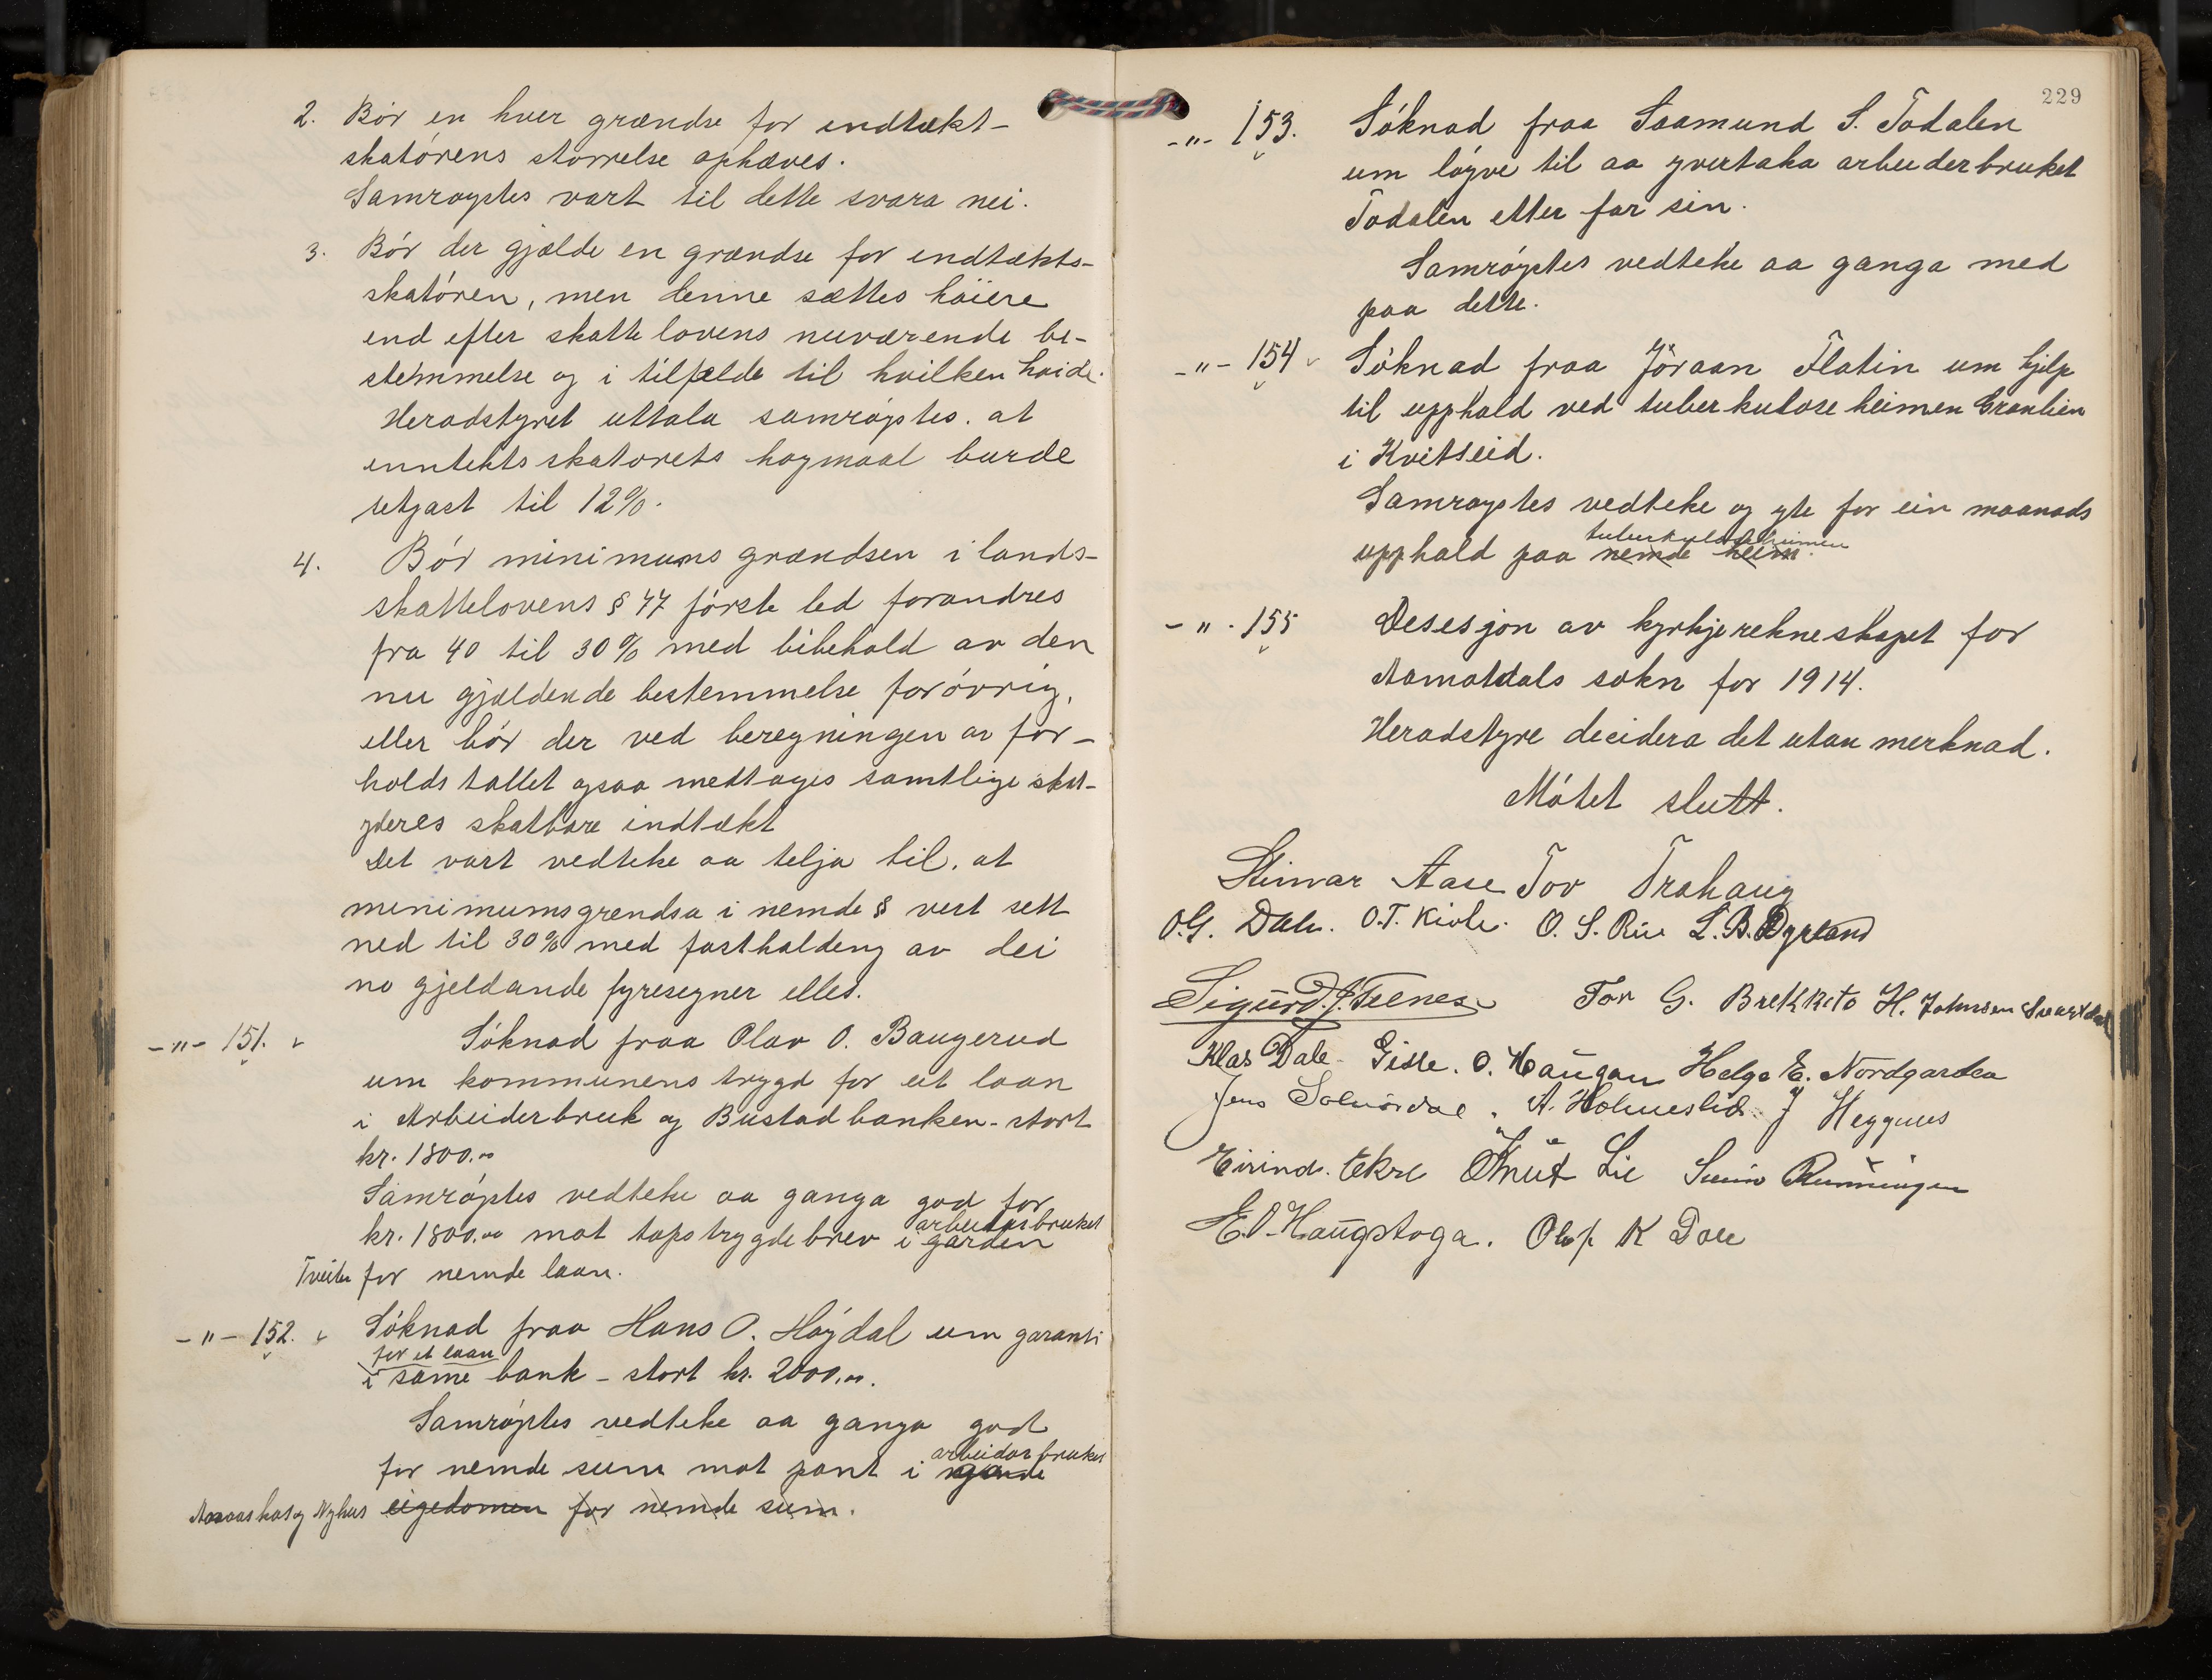 2. Bör en hver grændse for indtækt-
skatörens störrelse ophæves.
Samröystes vart til dette svara nei.
3. Bör der gjælde en grændse for indtækts-
skatören, men denne sættes höiere
end efter skattelovens nuværende be-
stemmelse og i tilfælde til hvilken höide.
Heradstyret uttala samröystes. at
inntektsskatörets hogmaal burde
setjast til 12%.
4. Bör minimumsgrændsen i lands-
skattelovens § 47 förste led forandres
fra 40 til 30% med bibehold av den
nu gjældende bestemmelse forövrig,
eller bör der ved beregningen av for-
holdstallet ogsaa medtages samtlige skat-
yderes skatbare indtækt
Det vart vedteke aa telja til. at
minimumsgrendsa i nemde § vert sett
ned til 30% med fasthalding av dei
no gjeldande fyresegner elles.
-"- 151. Söknad fraa Olav O. Baugerud
um kommunens trygd for eit laan
i Arbeiderbruk og Bustadbanken - stort
kr. 1800.00
Samröystes vedteke aa ganga god for
arbeidarbruket
kr. 1800.00 mot tapstrygdebrev i garden
Tveiten for nemde laan.
-"- 152. Söknad fraa Hans O. Höydal um garanti
for et laan
i same bank - stort kr. 2000.00.
Samröystes vedteke aa ganga god
arbeidarbruket
for nemde sum mot pant i
Nyhus eigedomen for nemde sum.
229
-"- 153. Söknad fraa Saamund S. Todalen
um löyve til aa yvertaka arbeiderbruket
Todalen etter far sin.
Samröystes vedteke aa ganga med
paa dette.
-"- 154 Söknad fraa Jöraan Flatin um hjelp
til upphald ved tuberkuloseheimen Granlien
i Kvitseid.
Samröystes vedteke og yte for ein maanads
tuberkuloseheimen
upphald paa nemde heim.
-"- 155 Desesjon av kyrkjerekneskapet for
Aamotsdals sokn for 1914.
Heradstyre decidera det utan merknad.
Mötet slutt.
Steinar Aase Tov Trahaug
O.G. Dale. O.T. Kivle. O. S. Rui L. B. Dyrland
Sigurd. J. Tor G. Brekketo H. Johnsen Svartdal
Klas Dale Gisle. O. Haugan Helge E. Nordgarden
Jens A. Holmeslid. J Heggnes
Eirind. Ekre Knut Lie Svein Runningen
E. O. Haugstoga. Olaf K Dale